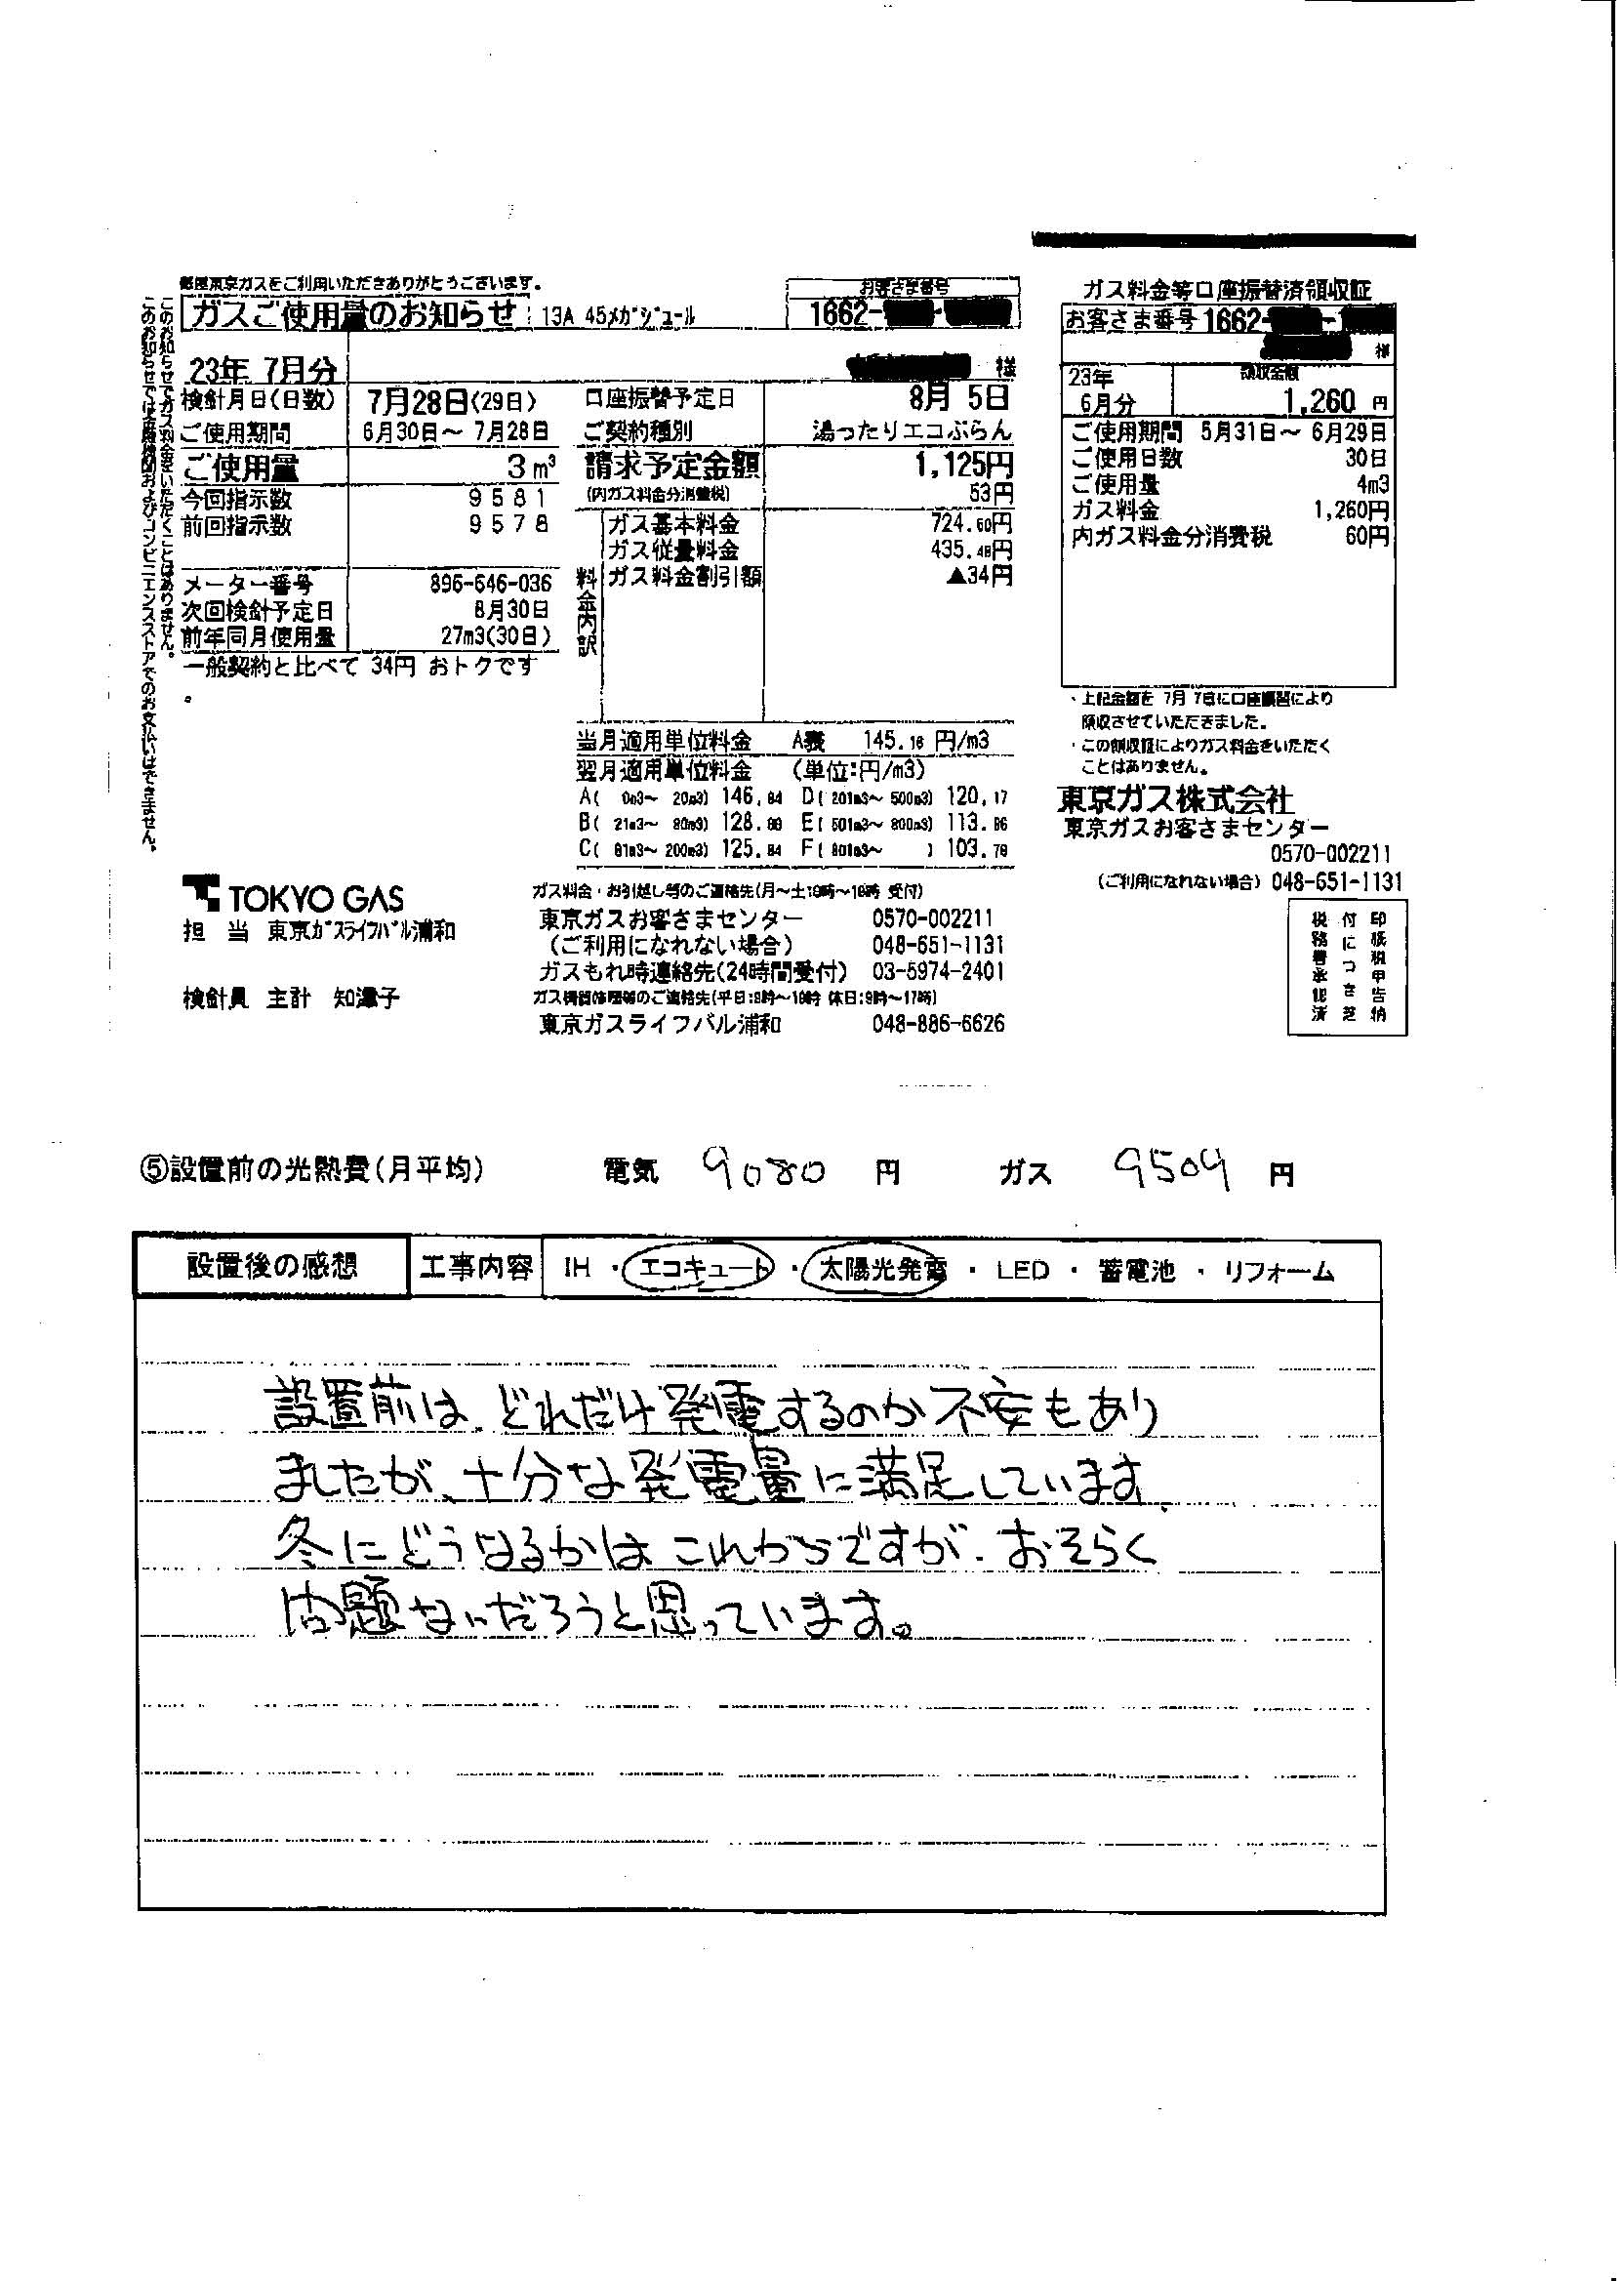 毎度東京ガスをご利用いただきありがとうございます。
ガスご使用量のお知らせ 13A 45メガジュール
お客さま番号
1662-
23年 7月分
様
検針月日(日数) 7月28日(29日)
ご使用期間 6月30日～ 7月28日
ご使用量 3m³
今回指示数 9581
前回指示数 9578
メーター番号 896-646-036
次回検針予定日 8月30日
前年同月使用量 27m3(30日)
一般契約と比べて 34円 おトクです
。
口座振替予定日 8月 5日
ご契約種別 湯ったりエコぷらん
請求予定金額 1,125円
(内ガス料金分消費税) 53円
料金内訳
ガス基本料金 724.60円
ガス従量料金 435.48円
ガス料金割引額 ▲34円
当月適用単位料金 A表 145.16 円/m3
翌月適用単位料金 (単位:円/m3)
A( 0m3～ 20m3) 146.84 D( 201m3～ 500m3) 120.17
B( 21m3～ 80m3) 128. E( 501m3～ 800m3) 113.86
C( 81m3～ 200m3) 125.84 F( 801m3～ ) 103.79
このお知らせでガス料金をいただくことはありません。
このお知らせでは金融機関およびコンビニエンスストアでのお支払いはできません。
TOKYO GAS
担 当 東京ガスライフバル浦和
検針員 主計 知津子
ガス料金・お引越し等のご連絡先(月～土:9時～19時 受付)
東京ガスお客さまセンター 0570-002211
(ご利用になれない場合) 048-651-1131
ガスもれ時連絡先(24時間受付) 03-5974-2401
ガス機器修理等のご連絡先(平日:9時～19時 休日:9時～17時)
東京ガスライフバル浦和 048-886-6626
ガス料金等口座振替済領収証
お客さま番号 1662-
様
23年
6月分
領収金額
1,260 円
ご使用期間 5月31日～ 6月29日
ご使用日数 30日
ご使用量 4m3
ガス料金 1,260円
内ガス料金分消費税 60円
・上記金額を 7月 7日に口座振替により
領収させていただきました。
・この領収証によりガス料金をいただく
ことはありません。
東京ガス株式会社
東京ガスお客さまセンター
0570-002211
(ご利用になれない場合) 048-651-1131
印紙税申告納
付につき芝
税務署承認済
⑤設置前の光熱費(月平均) 電気 9080 円 ガス 9509 円
設置後の感想 工事内容 IH ・ エコキュート ・ 太陽光発電 ・ LED ・ 蓄電池 ・ リフォーム
設置前は、どれだけ発電するのか不安もあり
ましたが、十分な発電量に満足しています。
冬にどうなるかはこれからですが、おそらく
問題ないだろうと思っています。